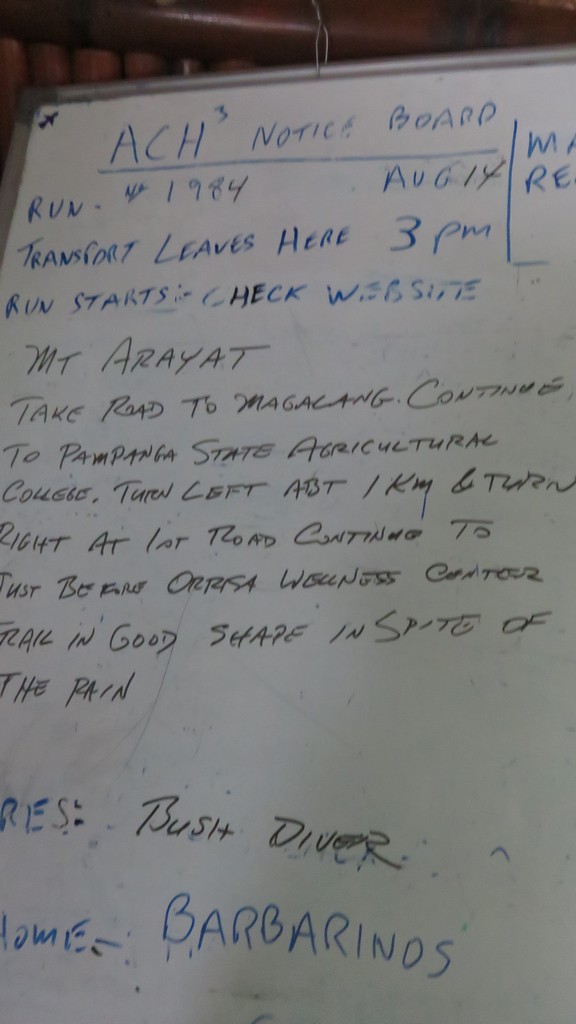 ACH³ NOTICE BOARD
RUN - # 1984 AUG 14
TRANSPORT LEAVES HERE 3 pm
RUN STARTS:- CHECK WEBSITE
MT ARAYAT
TAKE ROAD TO MAGALANG. CONTINUE
TO PAMPANGA STATE AGRICULTURAL
COLLEGE. TURN LEFT ABT 1 KM & TURN
RIGHT AT 1ST ROAD CONTINUE TO
JUST BEFORE WELLNESS CENTER
TRAIL IN GOOD SHAPE IN SPITE OF
THE RAIN
RES: BUSH DIVER
HOME - BARBARINOS
MA
RE